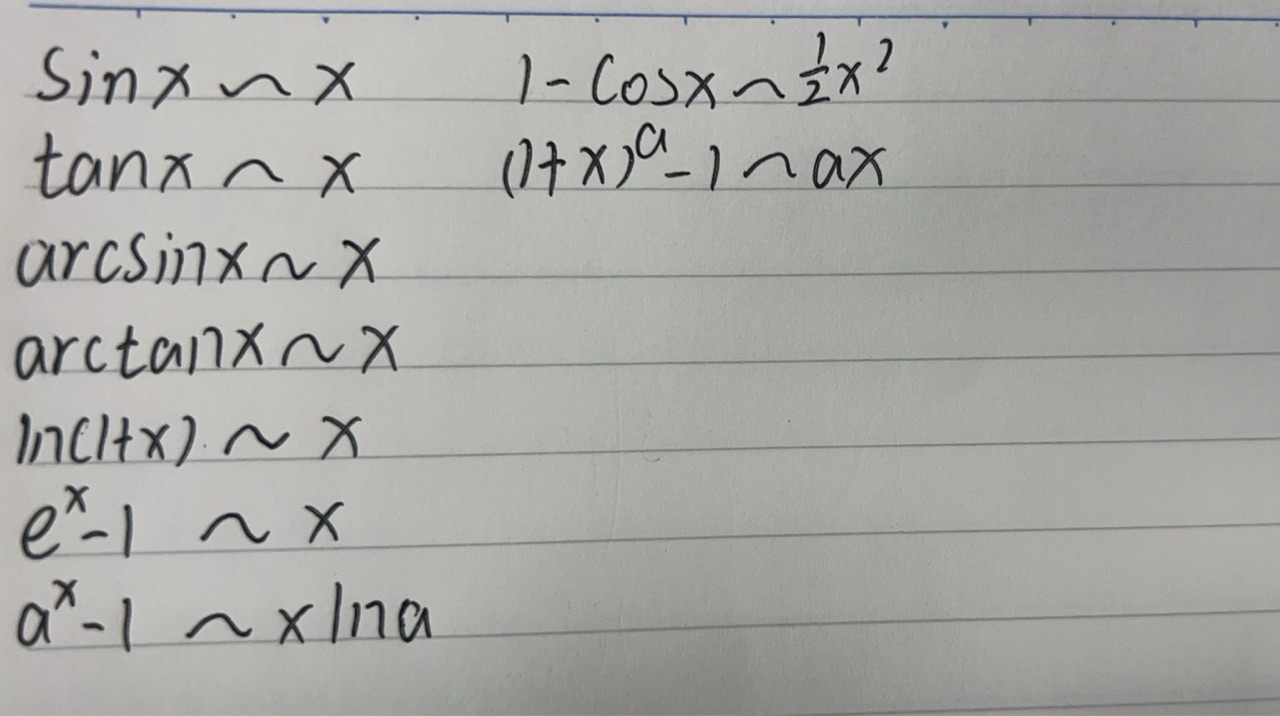 sinx ~ x    1-cosx ~ ½x²
tanx ~ x    (1+x)ᵃ-1 ~ ax
arcsinx ~ x
arctanx ~ x
ln(1+x) ~ x
eˣ-1 ~ x
aˣ-1 ~ xlna